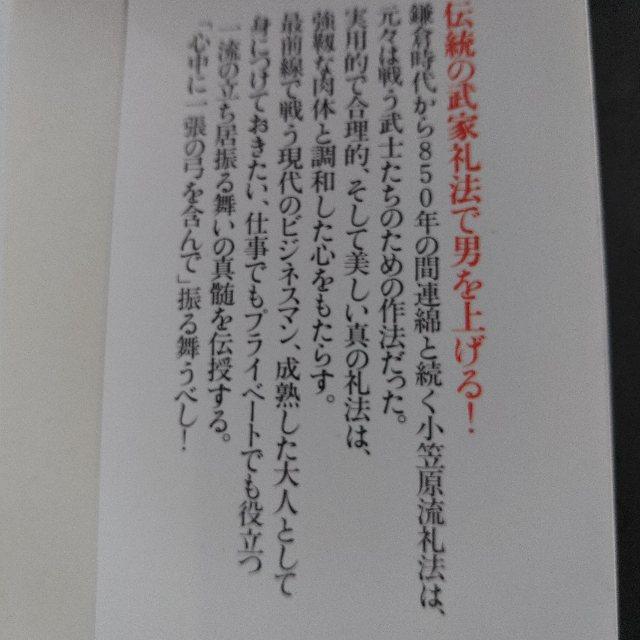 伝統の武家礼法で男を上げる!
鎌倉時代から850年の間連綿と続く小笠原流礼法は、
元々は戦う武士たちのための作法だった。
実用的で合理的、そして美しい真の礼法は、
強靱な肉体と調和した心をもたらす。
最前線で戦う現代のビジネスマン、成熟した大人として
身につけておきたい、仕事でもプライベートでも役立つ
一流の立ち居振る舞いの真髄を伝授する。
「心中に一張の弓を含んで」振る舞うべし!